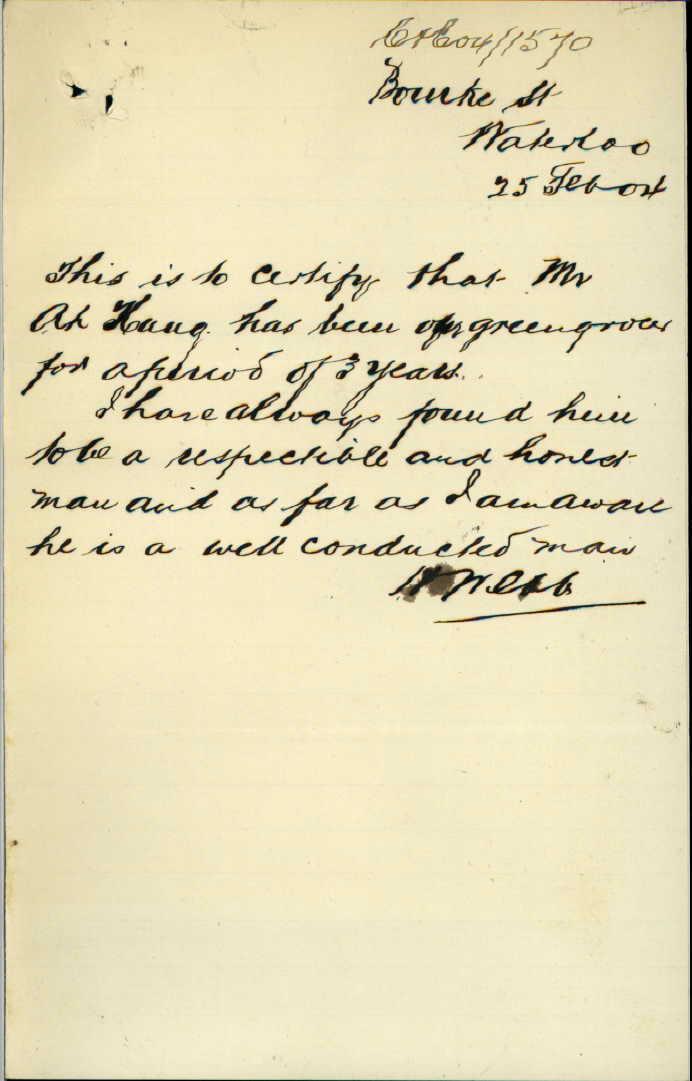 C+E04/1570
Bourke St
Waterloo
25 Feb 04
This is to certify that Mr
Ah Kang has been my greengrocer
for a period of 3 years.
I have always found him
to be a respectible and honest
man and as far as I am aware
he is a well conducted man
W Webb